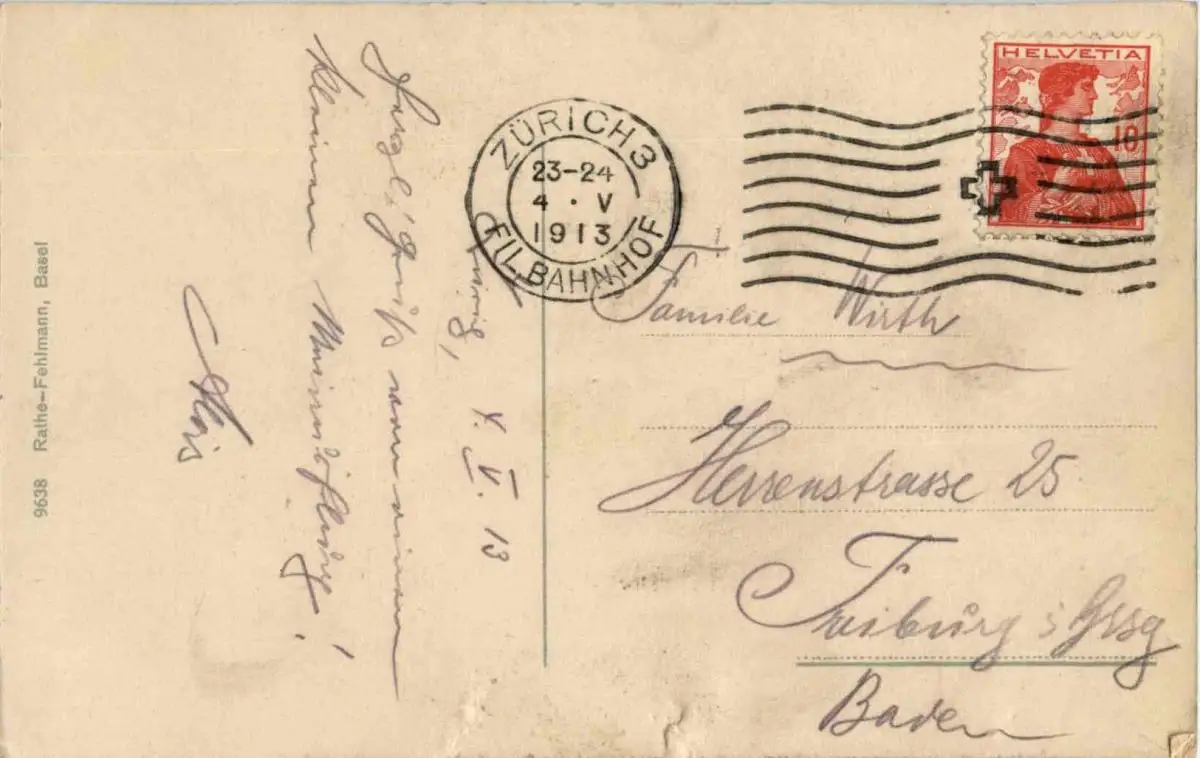 HELVETIA
10
ZÜRICH 3
23-24
4 · V
1913
FILBAHNHOF
Zürich, 4. V. 13
Herzl. Gruß von einem
kleinen
Alois
Familie Wirth
Herrenstrasse 25
Freiburg i/Brsg
Baden
9638 Rathe-Fehlmann, Basel